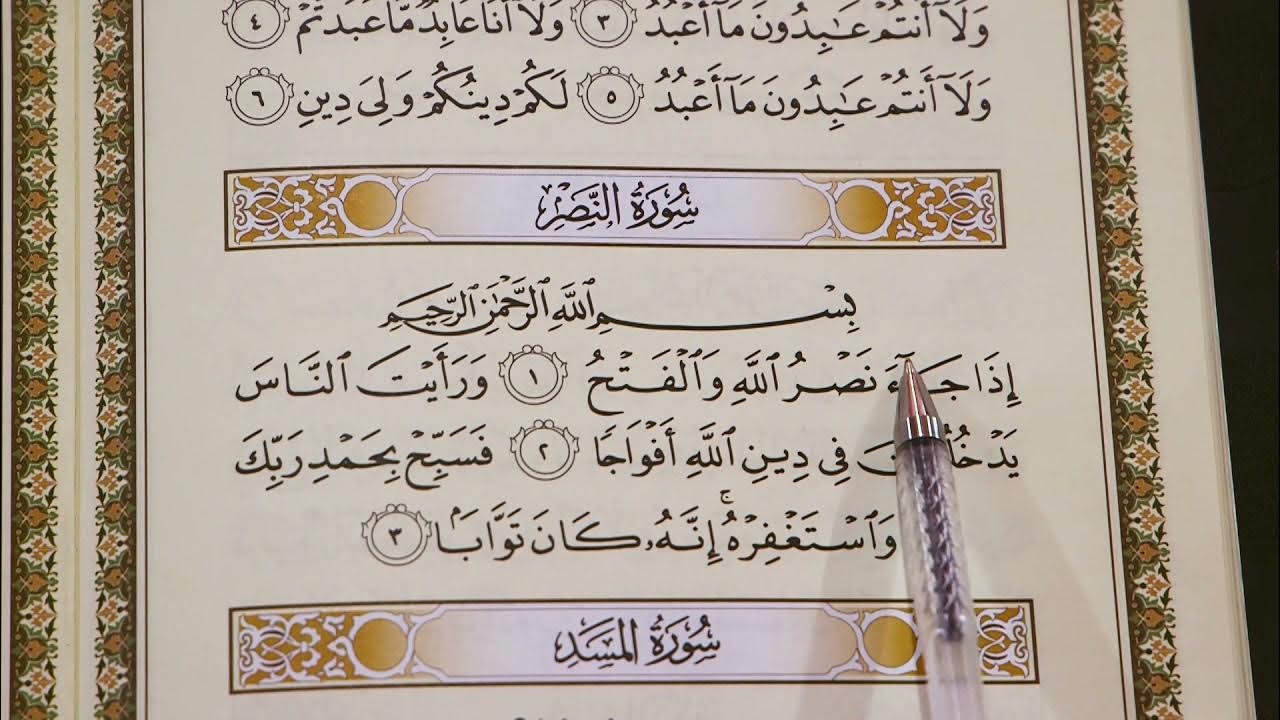 وَلَآ أَنتُمْ عَـٰبِدُونَ مَآ أَعْبُدُ ٣ وَلَآ أَنَا۠ عَابِدٌ مَّا عَبَدتُّمْ ٤
وَلَآ أَنتُمْ عَـٰبِدُونَ مَآ أَعْبُدُ ٥ لَكُمْ دِينُكُمْ وَلِىَ دِينِ ٦
سُورَةُ النَّصْرِ
بِسْمِ ٱللَّهِ ٱلرَّحْمَـٰنِ ٱلرَّحِيمِ
إِذَا جَآءَ نَصْرُ ٱللَّهِ وَٱلْفَتْحُ ١ وَرَأَيْتَ ٱلنَّاسَ
يَدْخُلُونَ فِى دِينِ ٱللَّهِ أَفْوَاجًا ٢ فَسَبِّحْ بِحَمْدِ رَبِّكَ
وَٱسْتَغْفِرْهُ ۚ إِنَّهُۥ كَانَ تَوَّابًۢا ٣
سُورَةُ المَسَدِ